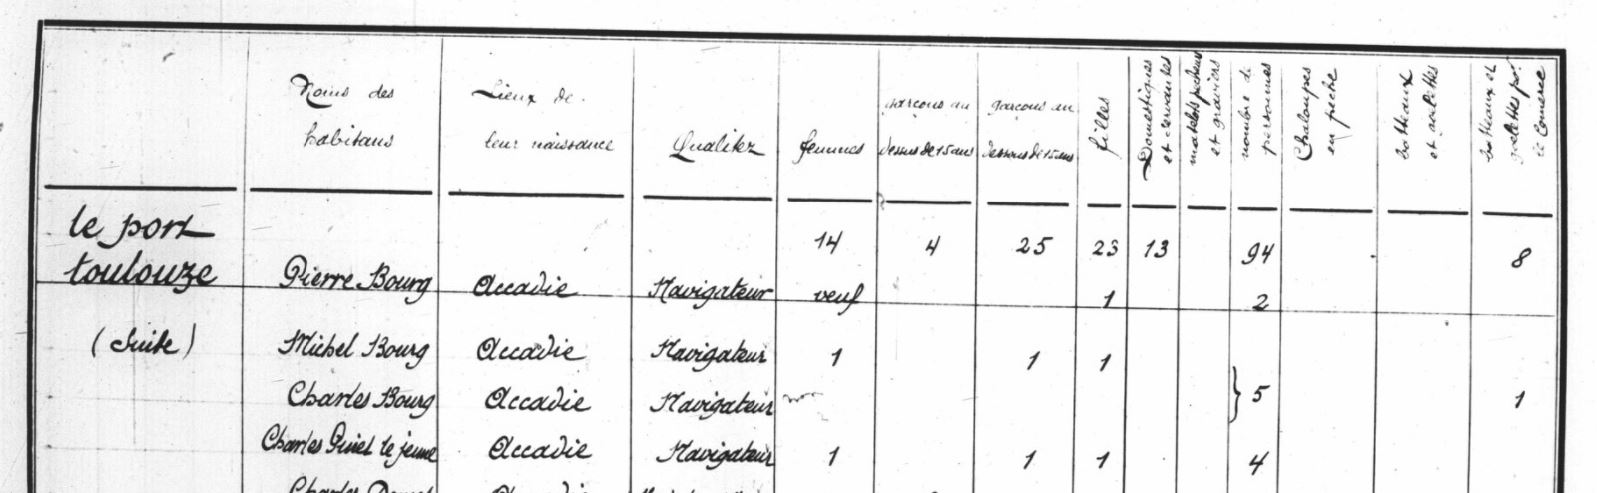 Noms des habitans
Lieux de leur naissance
Qualitez
femmes
garcons au dessus de 15 ans
garcons au dessous de 15 ans
filles
Domestiques et servantes
matelots pecheurs et graviers
nombre de personnes
Chaloupes en peche
batteaux et goelettes
batteaux et goelettes por. le Comerce
le port toulouze
14 4 25 23 13 94 8
Pierre Bourg Accadie Navigateur veuf 1 2
(Suite)
Michel Bourg Accadie Navigateur 1 1 1
} 5 1
Charles Bourg Accadie Navigateur
Charles le jeune Accadie Navigateur 1 1 1 4
Charles